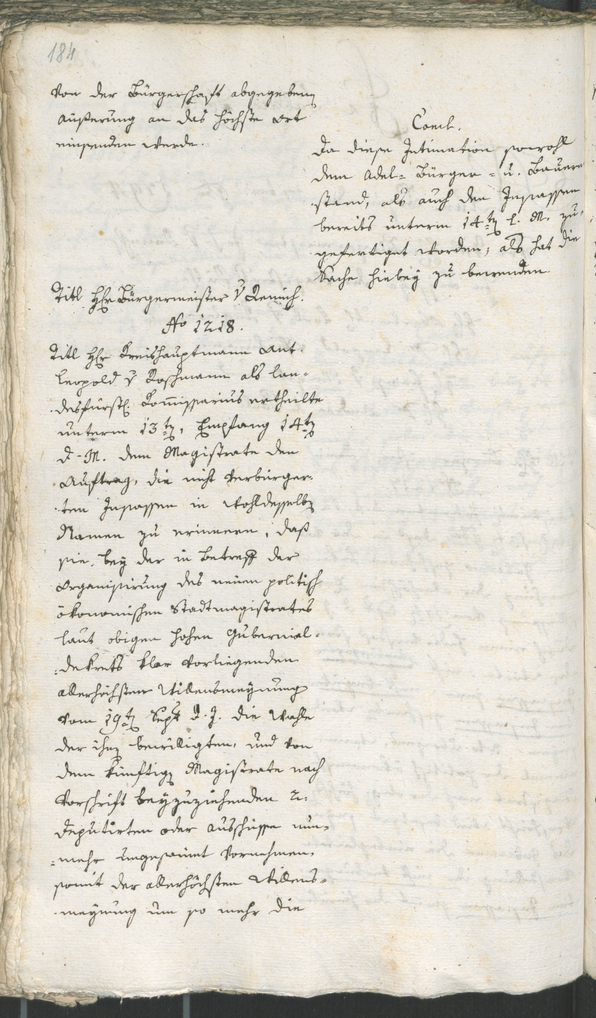 184
von der Bürgerschaft abgegebene
Äußerung an das höchste Ort
einsenden werde.
Concl.
Da diese Intimation sowohl
dem Adel- Bürger- u. Bauern
stand, als auch den Insassen
bereits unterm 14ten l. M. zu-
gefertigt worden, als hat die
Sache hiebey zu bewenden.
Titl. Hhr Bürgermeister v
No 1218.
Titl Hhr Kreishauptmann Ant.
Leopold v Roschmann als lan-
desfürstl. Commissarius ertheilte
unterm 13ten, Empfang 14ten
d. M. dem Magistrate den
Auftrag, die nicht verbürger-
ten Insassen in Wohldesselben
Namen zu erinnern, daß
sie bey der in Betreff der
Organisirung des neuen politisch
ökonomischen Stadtmagistrates
laut obigen hohen Gubernial-
dekrets klar vorliegenden
allerhöchsten Willensmeynung
vom 19ten Sept. d. J. die Wahl
der ihnen bewilligten, und von
dem künftigen Magistrate nach
Vorschrift beyzuziehenden 2.
Deputirten oder Ausschüsse nun-
mehr ungesäumt vornehmen,
somit der allerhöchsten Willens-
meynung um so mehr die